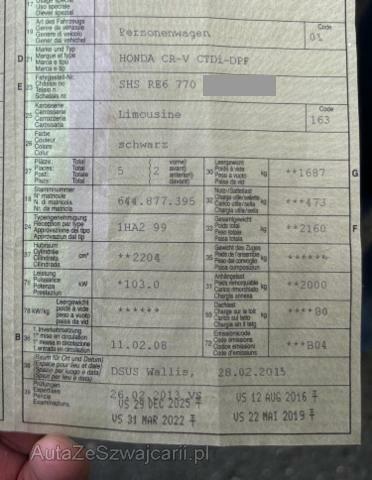 Uso speciale
Diever spezial
Art des Fahrzeugs
Genre de véhicule
Genere di veicolo
Gener dal vehichel
Personenwagen
Code
01
Marke und Typ
Marque et type
Marca e tipo
Marca e tip
D
HONDA CR-V CTDi-DPF
Fahrgestell-Nr.
Châssis no
Telaio n.
Schassis nr.
E
SHS RE6 770
Karosserie
Carrosserie
Carrozzeria
Carossaria
Limousine
Code
163
Farbe
Couleur
Colore
Colur
schwarz
Plätze: Total
Places: Total
Posti: Totale
Plazs: Total
5
2
vorne/
avant/
anteriori/
davant/
Leergewicht
Poids à vide
Peso a vuoto
Paisa da vid
kg
**1687
G
Stammnummer
N° matricule
N. di matricola
Nr. da matricla
644.877.395
Nutz-/Sattellast
Charge utile/sellette
Carico utile/sella
Chargia utila/sella
kg
***473
Typengenehmigung
Réception par type
Approvazione del tipo
Approvaziun dal tip
1HA2 99
Gesamtgewicht
Poids total
Peso totale
Paisa totala
kg
**2160
F
Hubraum
Cylindrée
Cilindrata
Cilindrada
cm³
**2204
Gewicht des Zuges
Poids de l'ensemble
Peso del convoglio
Paisa cumposiziun
kg
******
Leistung
Puissance
Potenza
Prestaziun
kW
*103.0
Anhängelast
Poids remorquable
Carico rimorchiato
Chargia annexa
kg
**2000
78 kW/kg
Leergewicht
poids à vide
peso a vuoto
paisa da vid
******
Dachlast
Charge sur le toit
Carico sul tetto
Chargia sin il tetg
kg
****80
B
36
1. Inverkehrsetzung
1re mise en circulation
1a messa in circolazione
1. entrada en circulaziun
11.02.08
72
Emissionscode
Code émissions
Codice emissioni
Code d'emissiuns
***B04
38
(Raum für Ort und Datum)
(Espace pour lieu et date)
(Spazio per luogo e data)
(Spazi per lieu e data)
DSUS Wallis, 28.02.2015
39
Prüfungen
Expertises
Perizie
Examinaziuns
26.02.2013 VS
VS 29 DEC 2025
VS 12 AUG 2016
VS 31 MAR 2022
VS 22 MAI 2019
AutaZeSzwajcarii.pl